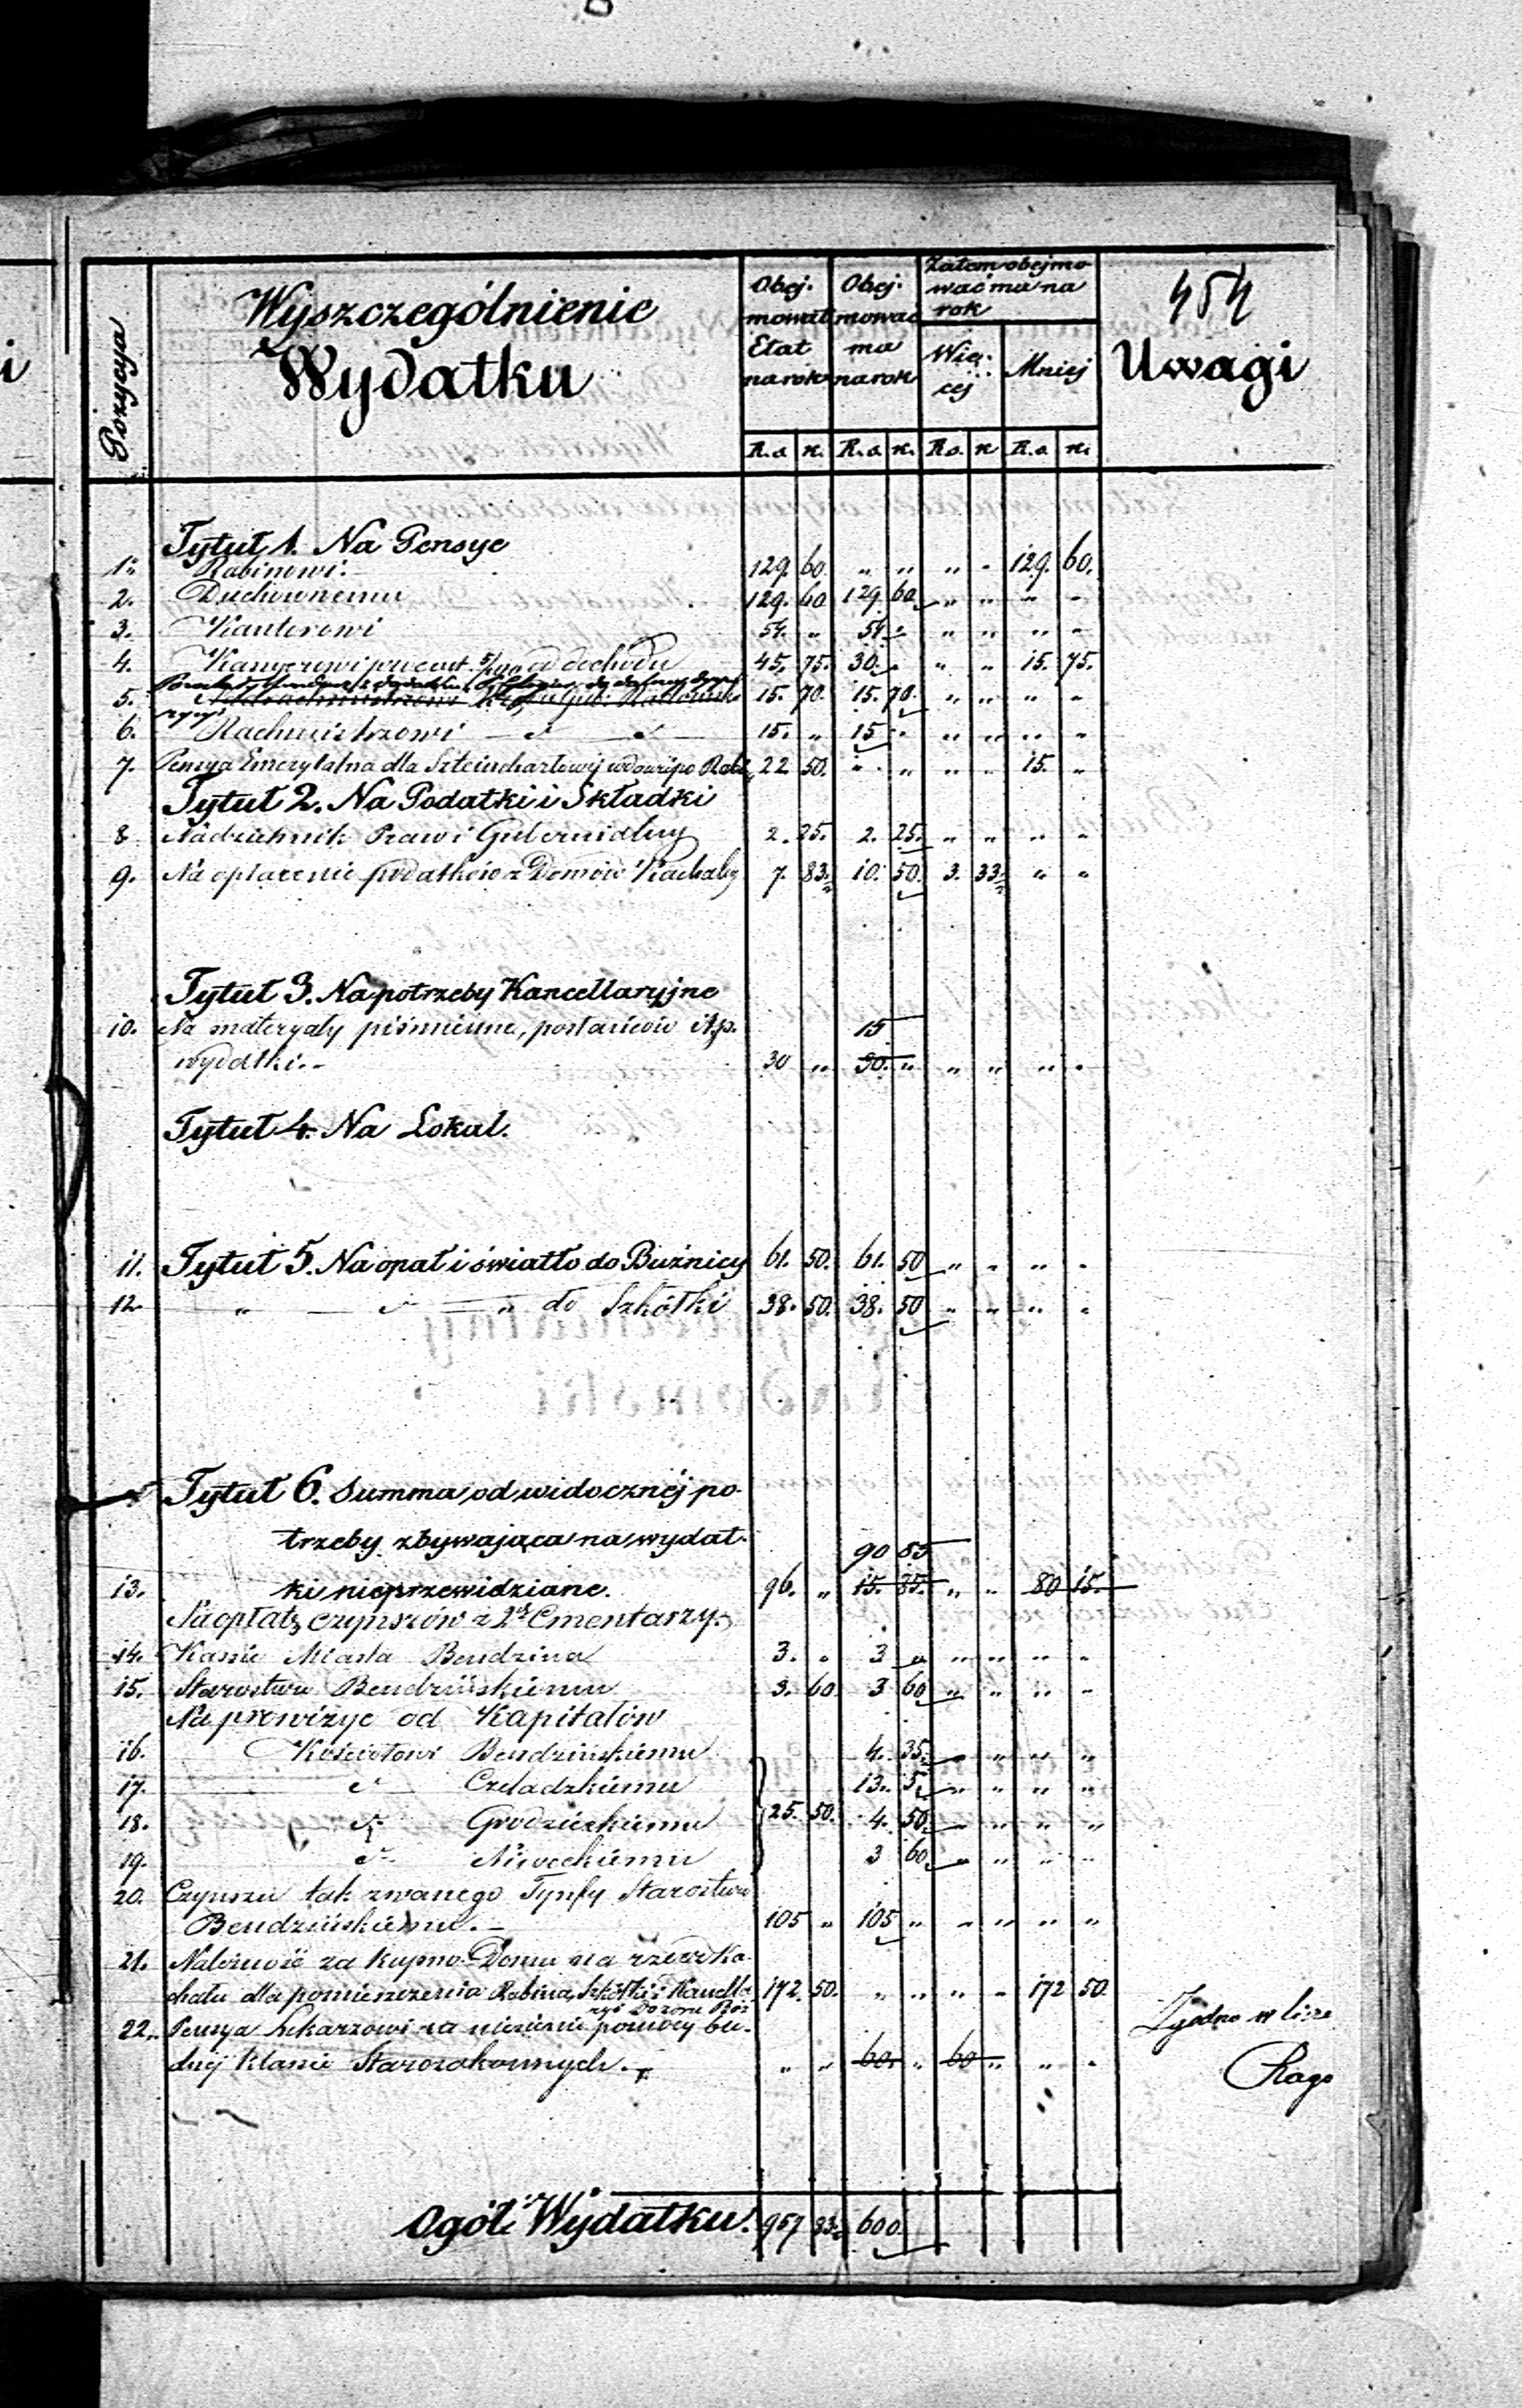 454
Pozycya
Wyszczególnienie
Wydatku
Obej-
mował
Etat
na rok
Obej-
mować
ma
na rok
Zatem obejmo
wać ma na
rok
Wię-
cej
Mniej
Uwagi
R.s. k. R.s. k. R.s. k. R.s. k.
Tytuł 1. Na Pensye
1. Rabinowi. 129. 60. " " " " 129. 60.
2. Duchownemu 129. 60 129. 60 " " " "
3. Kantorowi 54. " 54 " " " " "
4. Kassyerowi procent 5/100 od dochodu 45. 75. 30. " " " 15. 75.
5. 15. 70. 15. 70. " " " "
6. Rachmistrzowi 15. " 15 " " " " "
7. Pensya Emerytalna dla Szteinchartowij wdowi po Rab. 22. 50. " " " " 15. "
Tytuł 2. Na Podatki i Składki
8 Nadziennik Praw i Gubernialny 2. 25. 2. 25. " " " "
9. Na opłacenie podatków z Domów Kachalny 7. 83. 10. 50. 3. 33. " "
Tytuł 3. Na potrzeby Kancellaryjne
10. Na materyały piśmienne, postańców itp. 15
wydatki. 30 " 30. " " " " "
Tytuł 4. Na Lokal.
11. Tytuł 5. Na opał i światło do Bużnicy 61. 50. 61. 50 " " " "
12. " " do Szkółki 38. 50. 38. 50 " " " "
Tytuł 6. Summa od widocznéj po-
trzeby zbywająca na wydat- 90 85
13. ki nieprzewidziane. 96. " 15. 85. " " 80 15.
Na opłatę czynszów z 2ch Cmentarzy.
14. Kassie Miasta Bendzina 3. " 3 " " " " "
15. Starostwu Bendzińskiemu 3. 60 3 60 " " " "
Na prowizye od Kapitałów
16. Kościołowi Bendzińskiemu 4. 35. " " " "
17. Czeladzkiemu 13. 5. " " " "
18. Grodzieckiemu 25. 50. 4. 50. " " " "
19. Niweckiemu 3 60 " " " "
20. Czynszu tak zwanego Tynfy Starostwu
Bendzińskiemu. 105 " 105 " " " " "
21. Należność za kupno Domu na rzecz Ka-
chału dla pomieszczenia Rabina, Szkółki i Kancella 172. 50. " " " " 172 50.
ryi Dozoru Bóż
22. Pensya Lekarzowi na niesienie pomocy bie-
dnéj klassie Starozakonnych. " " 60. " 60 " " "
Zgodno w
Ogół Wydatku. 957 83 600.